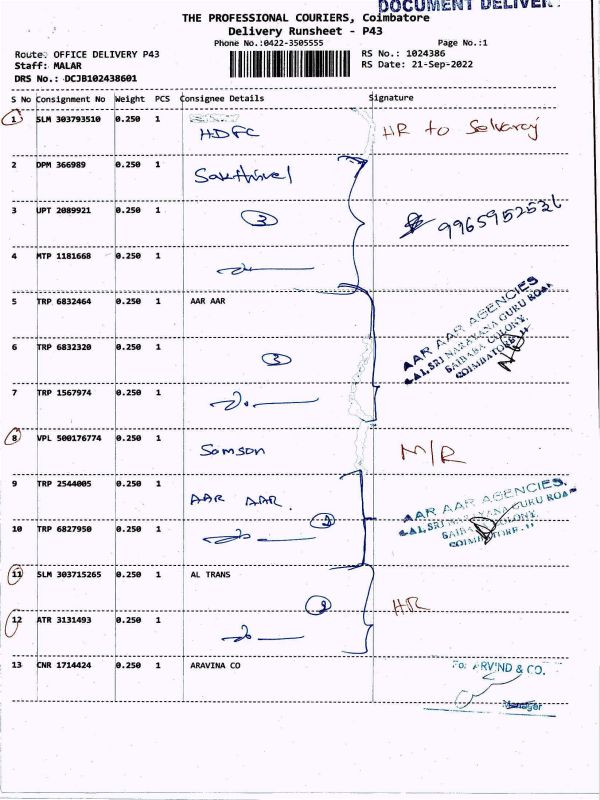 DOCUMENT DELIVER
THE PROFESSIONAL COURIERS, Coimbatore
Delivery Runsheet - P43
Phone No.:0422-3505555 Page No.:1
Route: OFFICE DELIVERY P43 RS No.: 1024386
Staff: MALAR RS Date: 21-Sep-2022
DRS No.: DCJB102438601
S No Consignment No Weight PCS Consignee Details Signature
1 SLM 303793510 0.250 1 HDFC HR to Selvaraj
2 DPM 366989 0.250 1 Sakthivel
3 UPT 2089921 0.250 1 3 9965952526
4 MTP 1181668 0.250 1
5 TRP 6832464 0.250 1 AAR AAR
AAR AAR AGENCIES
SRI NARAYANA GURU ROAD
SAIBABA COLONY,
COIMBATORE-11
6 TRP 6832320 0.250 1 3
7 TRP 1567974 0.250 1
8 VPL 500176774 0.250 1 Samson M/R
9 TRP 2544005 0.250 1 AAR AAR.
AAR AAR AGENCIES.
SRI NARAYANA GURU ROAD
SAIBABA COLONY,
COIMBATORE-11
10 TRP 6827950 0.250 1 2
11 SLM 303715265 0.250 1 AL TRANS
2 HR
12 ATR 3131493 0.250 1
13 CNR 1714424 0.250 1 ARAVINA CO For ARVIND & CO.
Manager